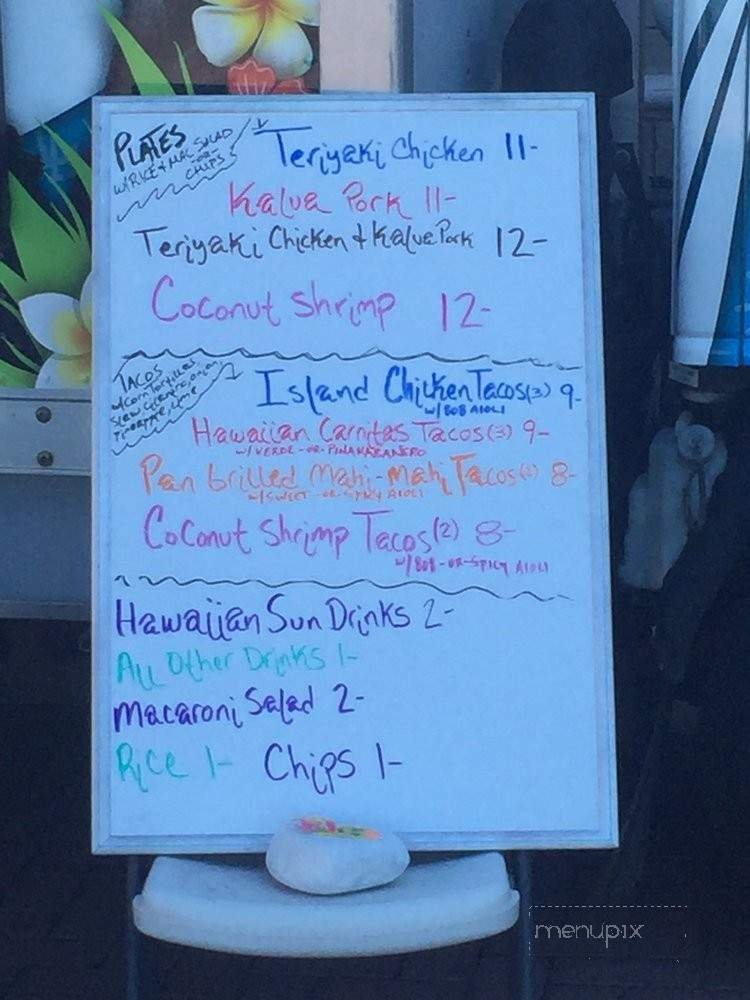 PLATES
W/RICE + MAC SALAD
-OR-
CHIPS
Teriyaki Chicken 11-
Kalua Pork 11-
Teriyaki Chicken + Kalua Pork 12-
Coconut Shrimp 12-
TACOS
w/Corn Tortillas,
Slaw, Cilantro, onion,
Pineapple, Lime
Island Chicken Tacos(3) 9-
w/ BOB AIOLI
Hawaiian Carnitas Tacos(3) 9-
w/ VERDE -OR- PINAHABANERO
Pan Grilled Mahi-Mahi Tacos(2) 8-
w/ SWEET -OR- SPICY AIOLI
Coconut Shrimp Tacos(2) 8-
w/ BOB -OR- SPICY AIOLI
Hawaiian Sun Drinks 2-
All Other Drinks 1-
Macaroni Salad 2-
Rice 1- Chips 1-
menupix